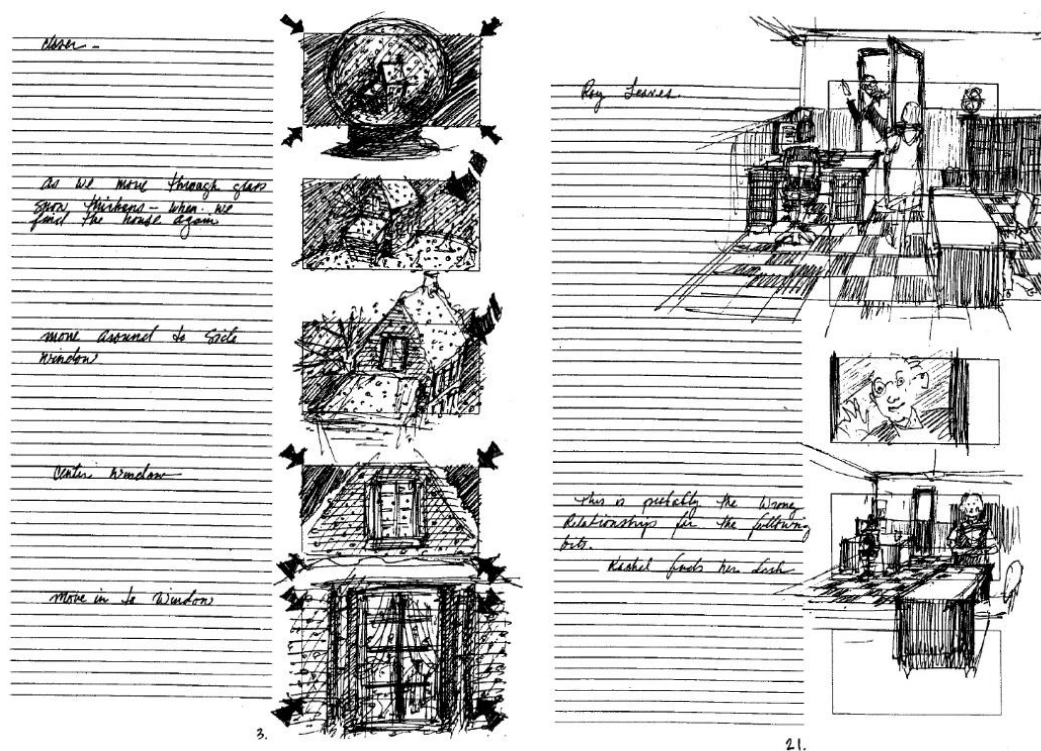 closer –
as we move through glass
snow thickens – when we
find the house again
move around to side
window
center window
move in to window
3.
Roy Leaves.
This is probably the wrong
Relationship for the following
bits.
Rachel finds her desk
21.